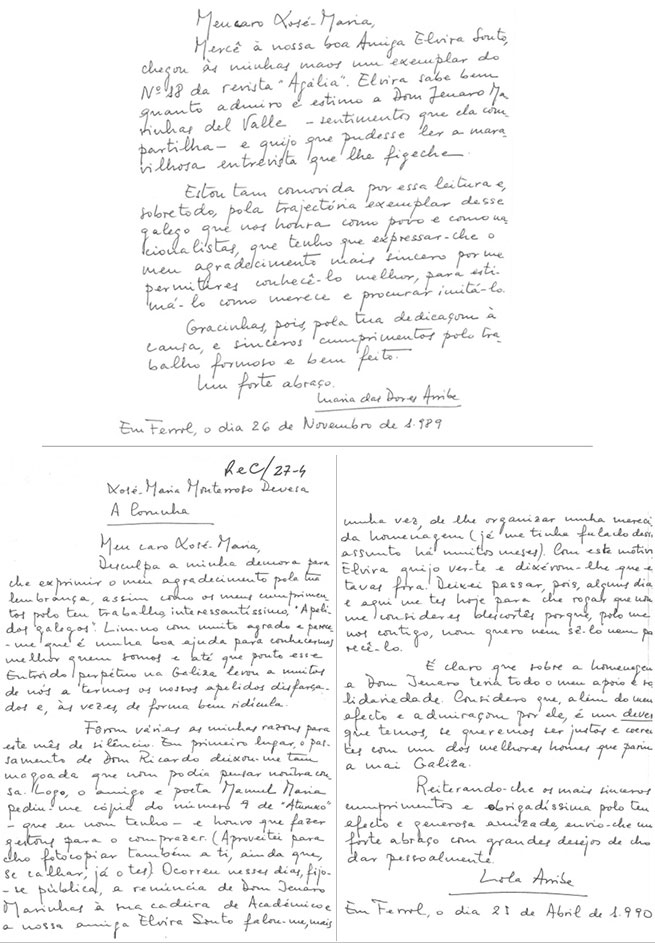 Meu caro Xosé-Maria,
Mercê à nossa boa Amiga Elvira Souto,
chegou às minhas maos um exemplar do
Nº 18 da revista "Agália". Elvira sabe bem
quanto admiro e estimo a Dom Jenaro Ma-
rinhas del Valle – sentimentos que ela com-
partilha – e quijo que pudesse ler a mara-
vilhosa entrevista que lhe figeche.
Estou tam comovida por essa leitura e,
sobretodo, pola trajectória exemplar desse
galego que nos honra como povo e como na-
cionalistas, que tenho que expressar-che o
meu agradecimento mais sincero por me
permitires conhecê-lo melhor, para esti-
má-lo como merece e procurar imitá-lo.
Gracinhas, pois, pola tua dedicaçom à
causa, e sinceros cumprimentos polo tra-
balho formoso e bem feito.
Um forte abraço.
Maria das Dores Arribe
Em Ferrol, o dia 26 de Novembro de 1.989
ReC/27-4
Xosé-Maria Monterroso Devesa
A Corunha
Meu caro Xosé-Maria,
Desculpa a minha demora para
che exprimir o meu agradecimento pola tua
lembrança, assim como os meus cumprimen-
tos polo teu trabalho, interessantíssimo, "Apeli-
dos galegos". Lim-no com muito agrado e parece-
-me que é umha boa ajuda para conhecermos
melhor quem somos e até que ponto esse
Entroido perpétuo na Galiza levou a muitos
de nós a termos os nossos apelidos disfarça-
dos e, às vezes, de forma bem ridícula.
Forom várias as minhas razons para
este mês de silêncio. Em primeiro lugar, o pas-
samento de Dom Ricardo deixou-me tam
magoada que nom podia pensar noutra cou-
sa. Logo, o amigo e poeta Manuel Maria
pediu-me cópia do número 9 de "Aturuxo"
– que eu nom tenho – e houvo que fazer
gestons para o comprazer. (Aproveitei para
cho fotocopiar também a ti, ainda que,
se calhar, já o tes) Ocorreu nesses dias, fijo-
-se pública, a renúncia de Dom Jenaro
Marinhas à sua cadeira de Académico e
a nossa amiga Elvira Souto falou-me, mais
umha vez, de lhe organizar umha mereci-
da homenagem (já me tinha falado desse
assunto há muitos meses). Com este motivo
Elvira quijo ver-te e dixérom-lhe que es-
tavas fora. Deixei passar, pois, alguns dias
e aqui me tes hoje para che rogar que nom
me consideres descortês porque, polo me-
nos contigo, nom quero nem sê-lo nem pa-
recê-lo.
É claro que sobre a homenagem
a Dom Jenaro tem todo o meu apoio e so-
lidariedade. Considero que, além do meu
efecto e admiraçom por ele, é um dever
que temos, se queremos ser justos e coeren-
tes com um dos melhores homes que pariu
a mai Galiza.
Reiterando-che os mais sinceros
cumprimentos e obrigadíssima polo teu
efecto e generosa amizade, envio-che um
forte abraço com grandes desejos de cho
dar pessoalmente.
Lola Arribe
Em Ferrol, o dia 23 de Abril de 1.990